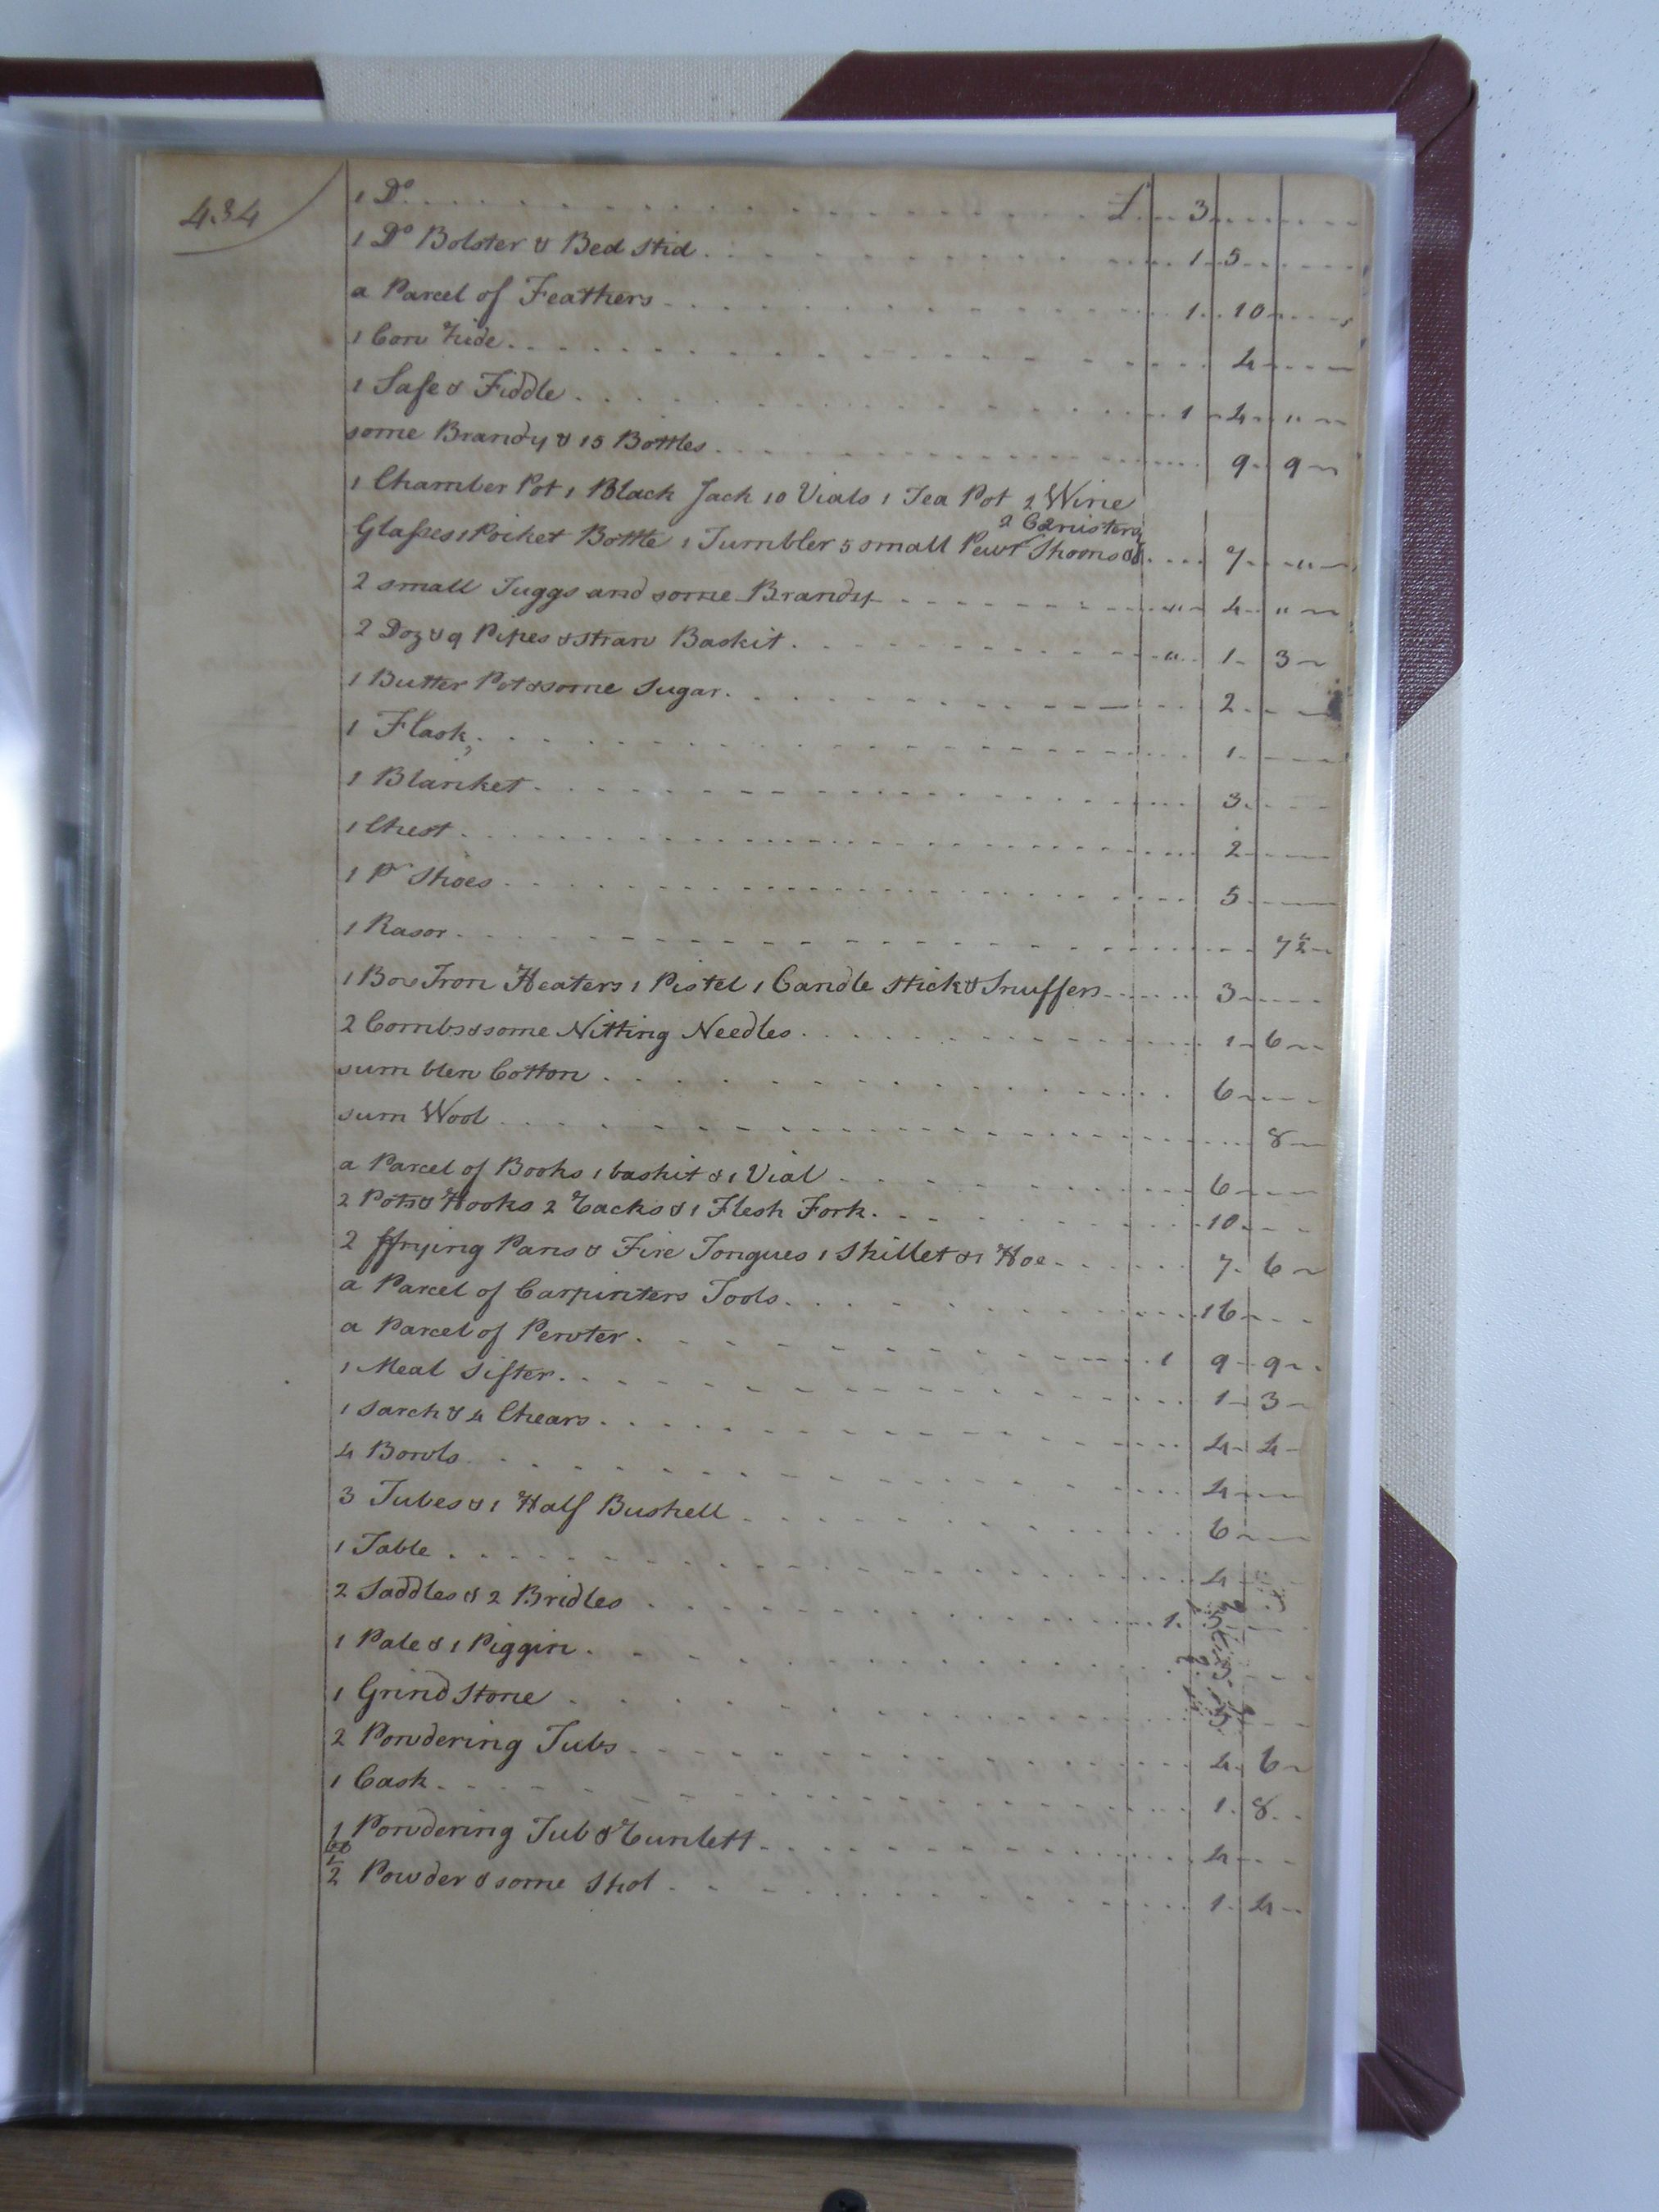 434
1 Do. £ 3
1 Do Bolster & Bed stid 1 5
a Parcel of Feathers 1 10
1 Cow hide 4
1 Safe & Fiddle 1 4 "
some Brandy & 15 Bottles 9 9
1 Chamber Pot 1 Black Jack 10 Vials 1 Tea Pot 2 Wine
2 Canisters
Glasses 1 Pocket Bottle 1 Tumbler 5 small Pewr Spoons & 7 "
2 small Juggs and some Brandy " 4 "
2 Doz & 9 Pipes & straw Baskit " 1 3
1 Butter Pot & some Sugar 2
1 Flask 1
1 Blanket 3
1 Chest 2
1 Pr Shoes 5
1 Rasor 7 1/2
1 Box Iron Heaters 1 Pistel 1 Candle stick & Snuffers 3
2 Combs & some Nitting Needles 1 6
sum blew Cotton 6
sum Wool 8
a Parcel of Books 1 baskit & 1 Vial 6
2 Pots & Hooks 2 Racks & 1 Flesh Fork 10
2 ffrying Pans & Fire Tongues 1 Skillet & 1 Hoe 7 6
a Parcel of Carpinters Tools 16
a Parcel of Pewter 1 9 9
1 Meal Sifter 1 3
1 Sarch & 4 Chears 4 4
4 Bowls 4
3 Tubes & 1 Half Bushell 6
1 Table 4
2 Saddles & 2 Bridles 1 5
1 Pale & 1 Piggin
1 Grind Stone
2 Powdering Tubs 4 6
1 Cask 1 8
1 Powdering Tub & Runlett 4
1/2 lb Powder & some Shot 1 4